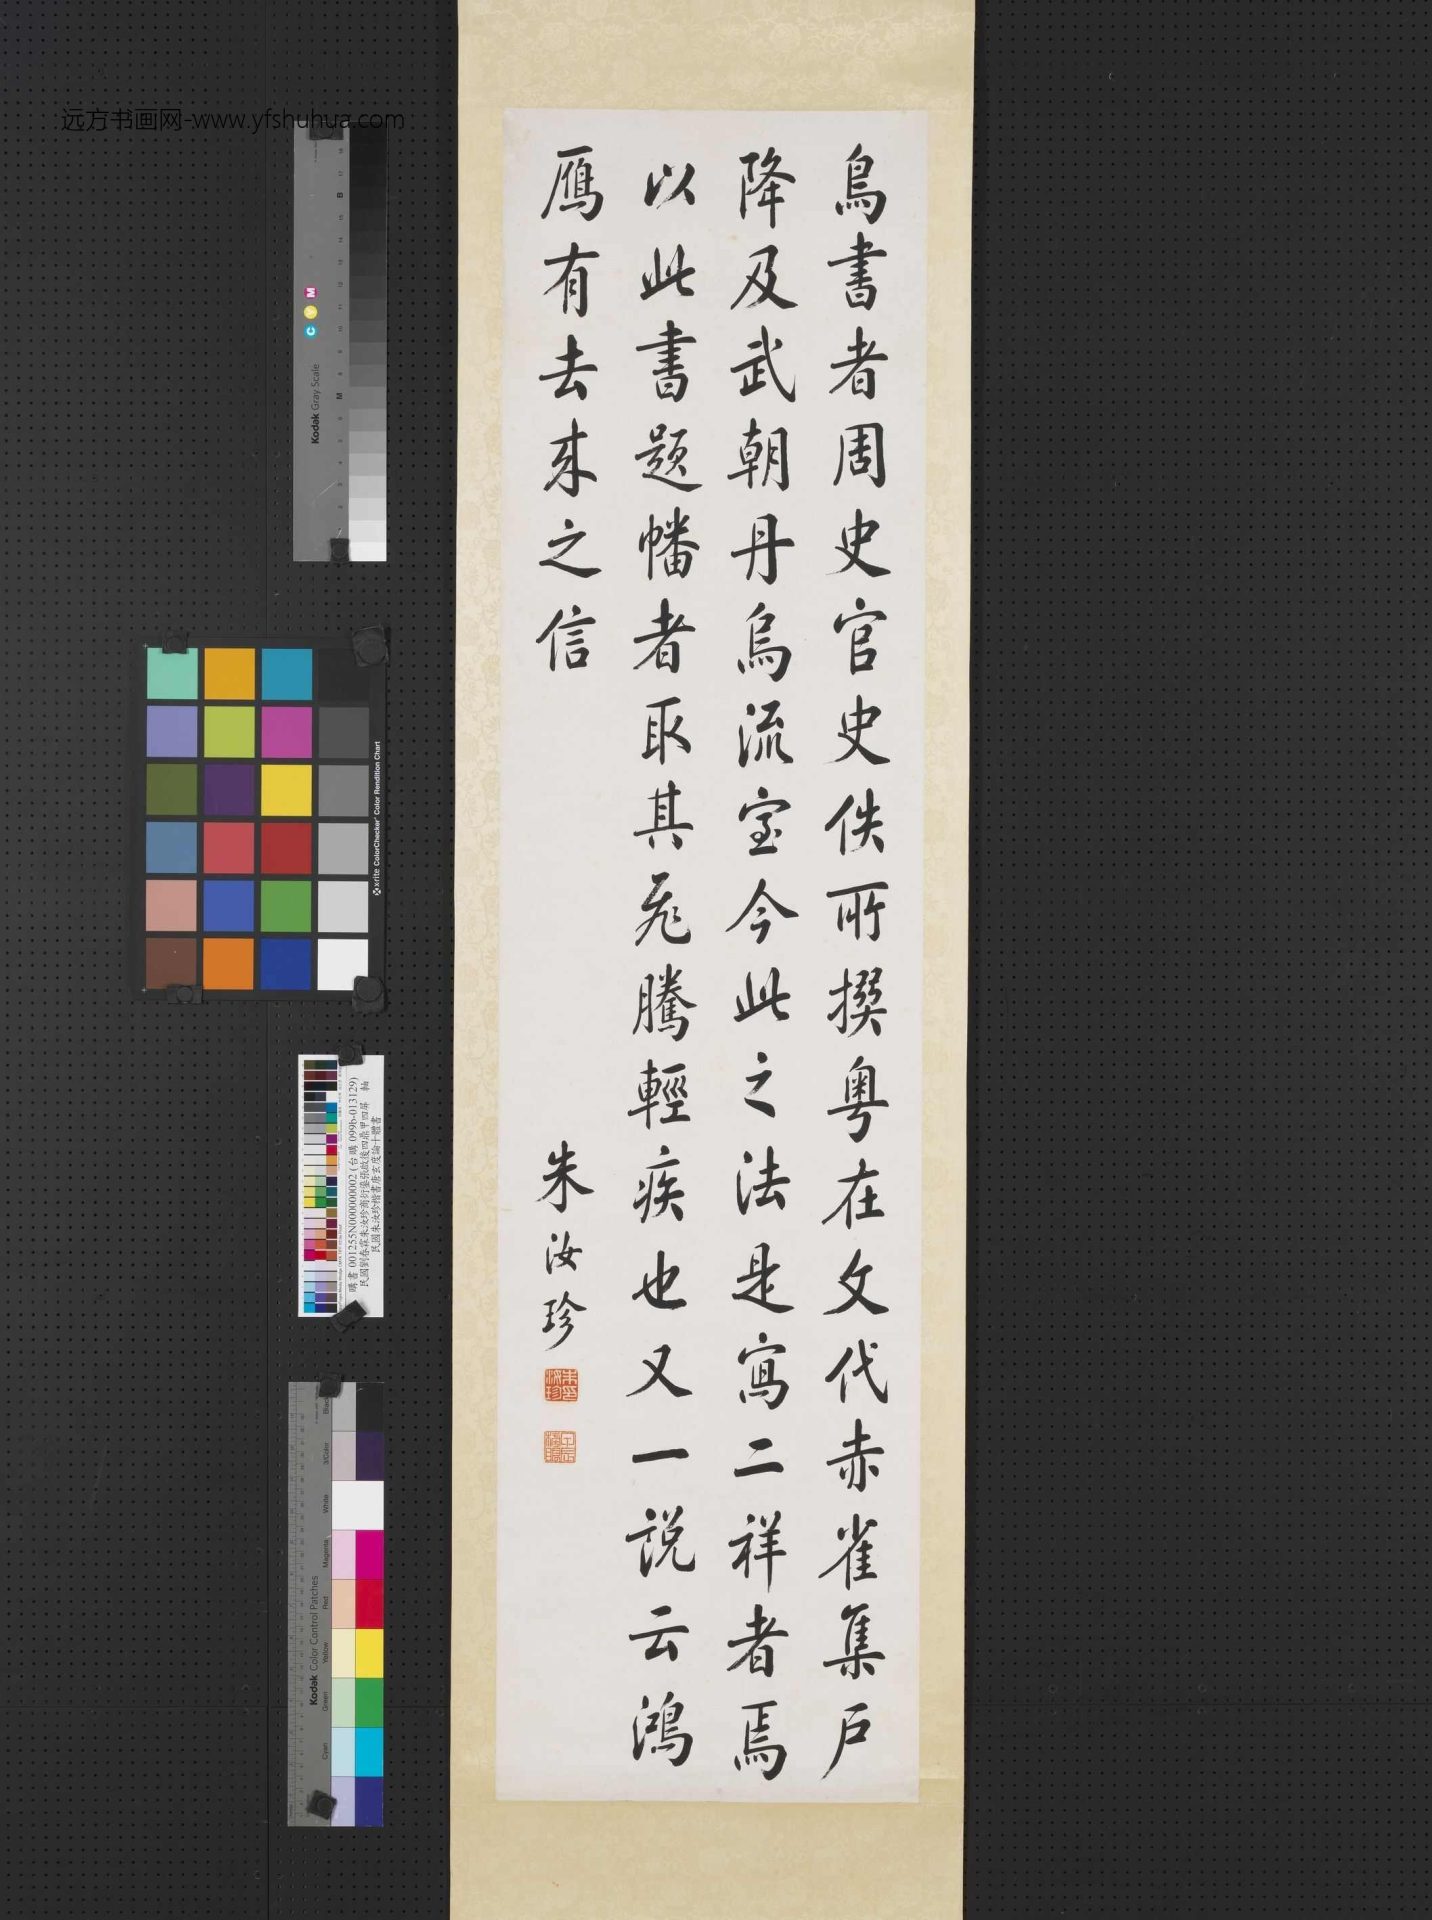 鳥書者周史官史佚所撰粵在文代赤雀集戶
降及武朝丹烏流室今此之法是寫二祥者焉
以此書題幡者取其飛騰輕疾也又一說云鴻
鴈有去來之信
朱汝珍
远方书画网-www.yfshuhua.com
Kodak Gray Scale
C Y M
B
M
x-rite ColorChecker Color Rendition Chart
購書 001255N000000002 (台購 099b-013129)
Kodak Color Control Patches
Black
3/Color
White
Magenta
Red
Yellow
Green
Cyan